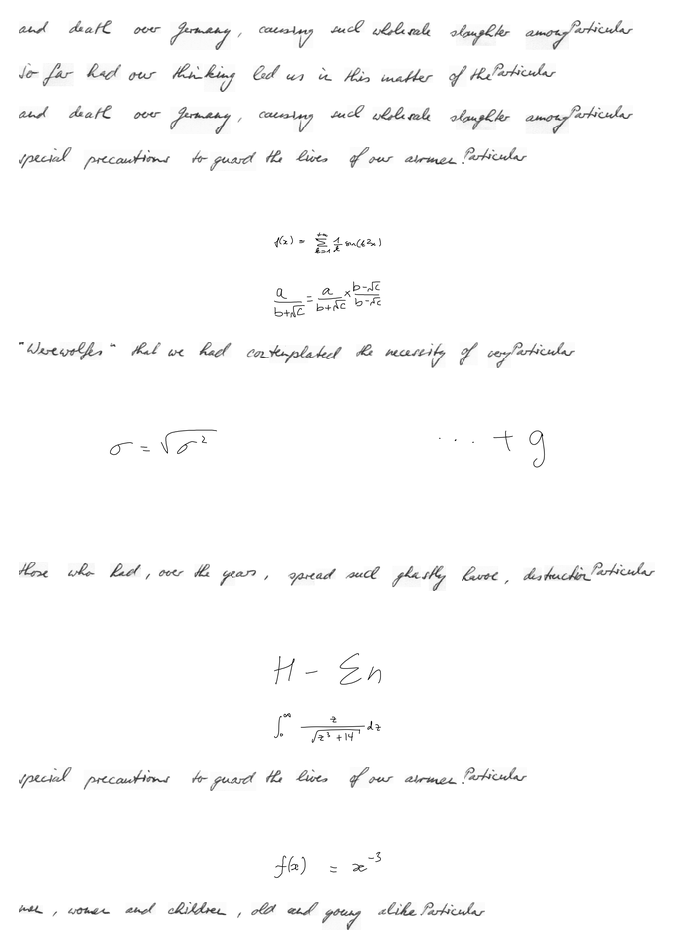 and death over Germany, causing such wholesale slaughter among Particular
So far had our thinking led us in this matter of the Particular
and death over Germany, causing such wholesale slaughter among Particular
special precautions to guard the lives of our airmen. Particular
f(x) = \sum_{k=1}^{+\infty} \frac{1}{k} \sin(k^2 x)
\frac{a}{b+\sqrt{c}} = \frac{a}{b+\sqrt{c}} \times \frac{b-\sqrt{c}}{b-\sqrt{c}}
"Werewolfes" that we had contemplated the necessity of very Particular
\sigma = \sqrt{\sigma^2} \quad \cdots + g
those who had, over the years, spread such ghastly havoc, destruction Particular
H - \Sigma n
\int_0^\infty \frac{z}{\sqrt{z^3+14}} dz
special precautions to guard the lives of our airmen. Particular
f(x) = x^{-3}
men, women and children, old and young alike Particular